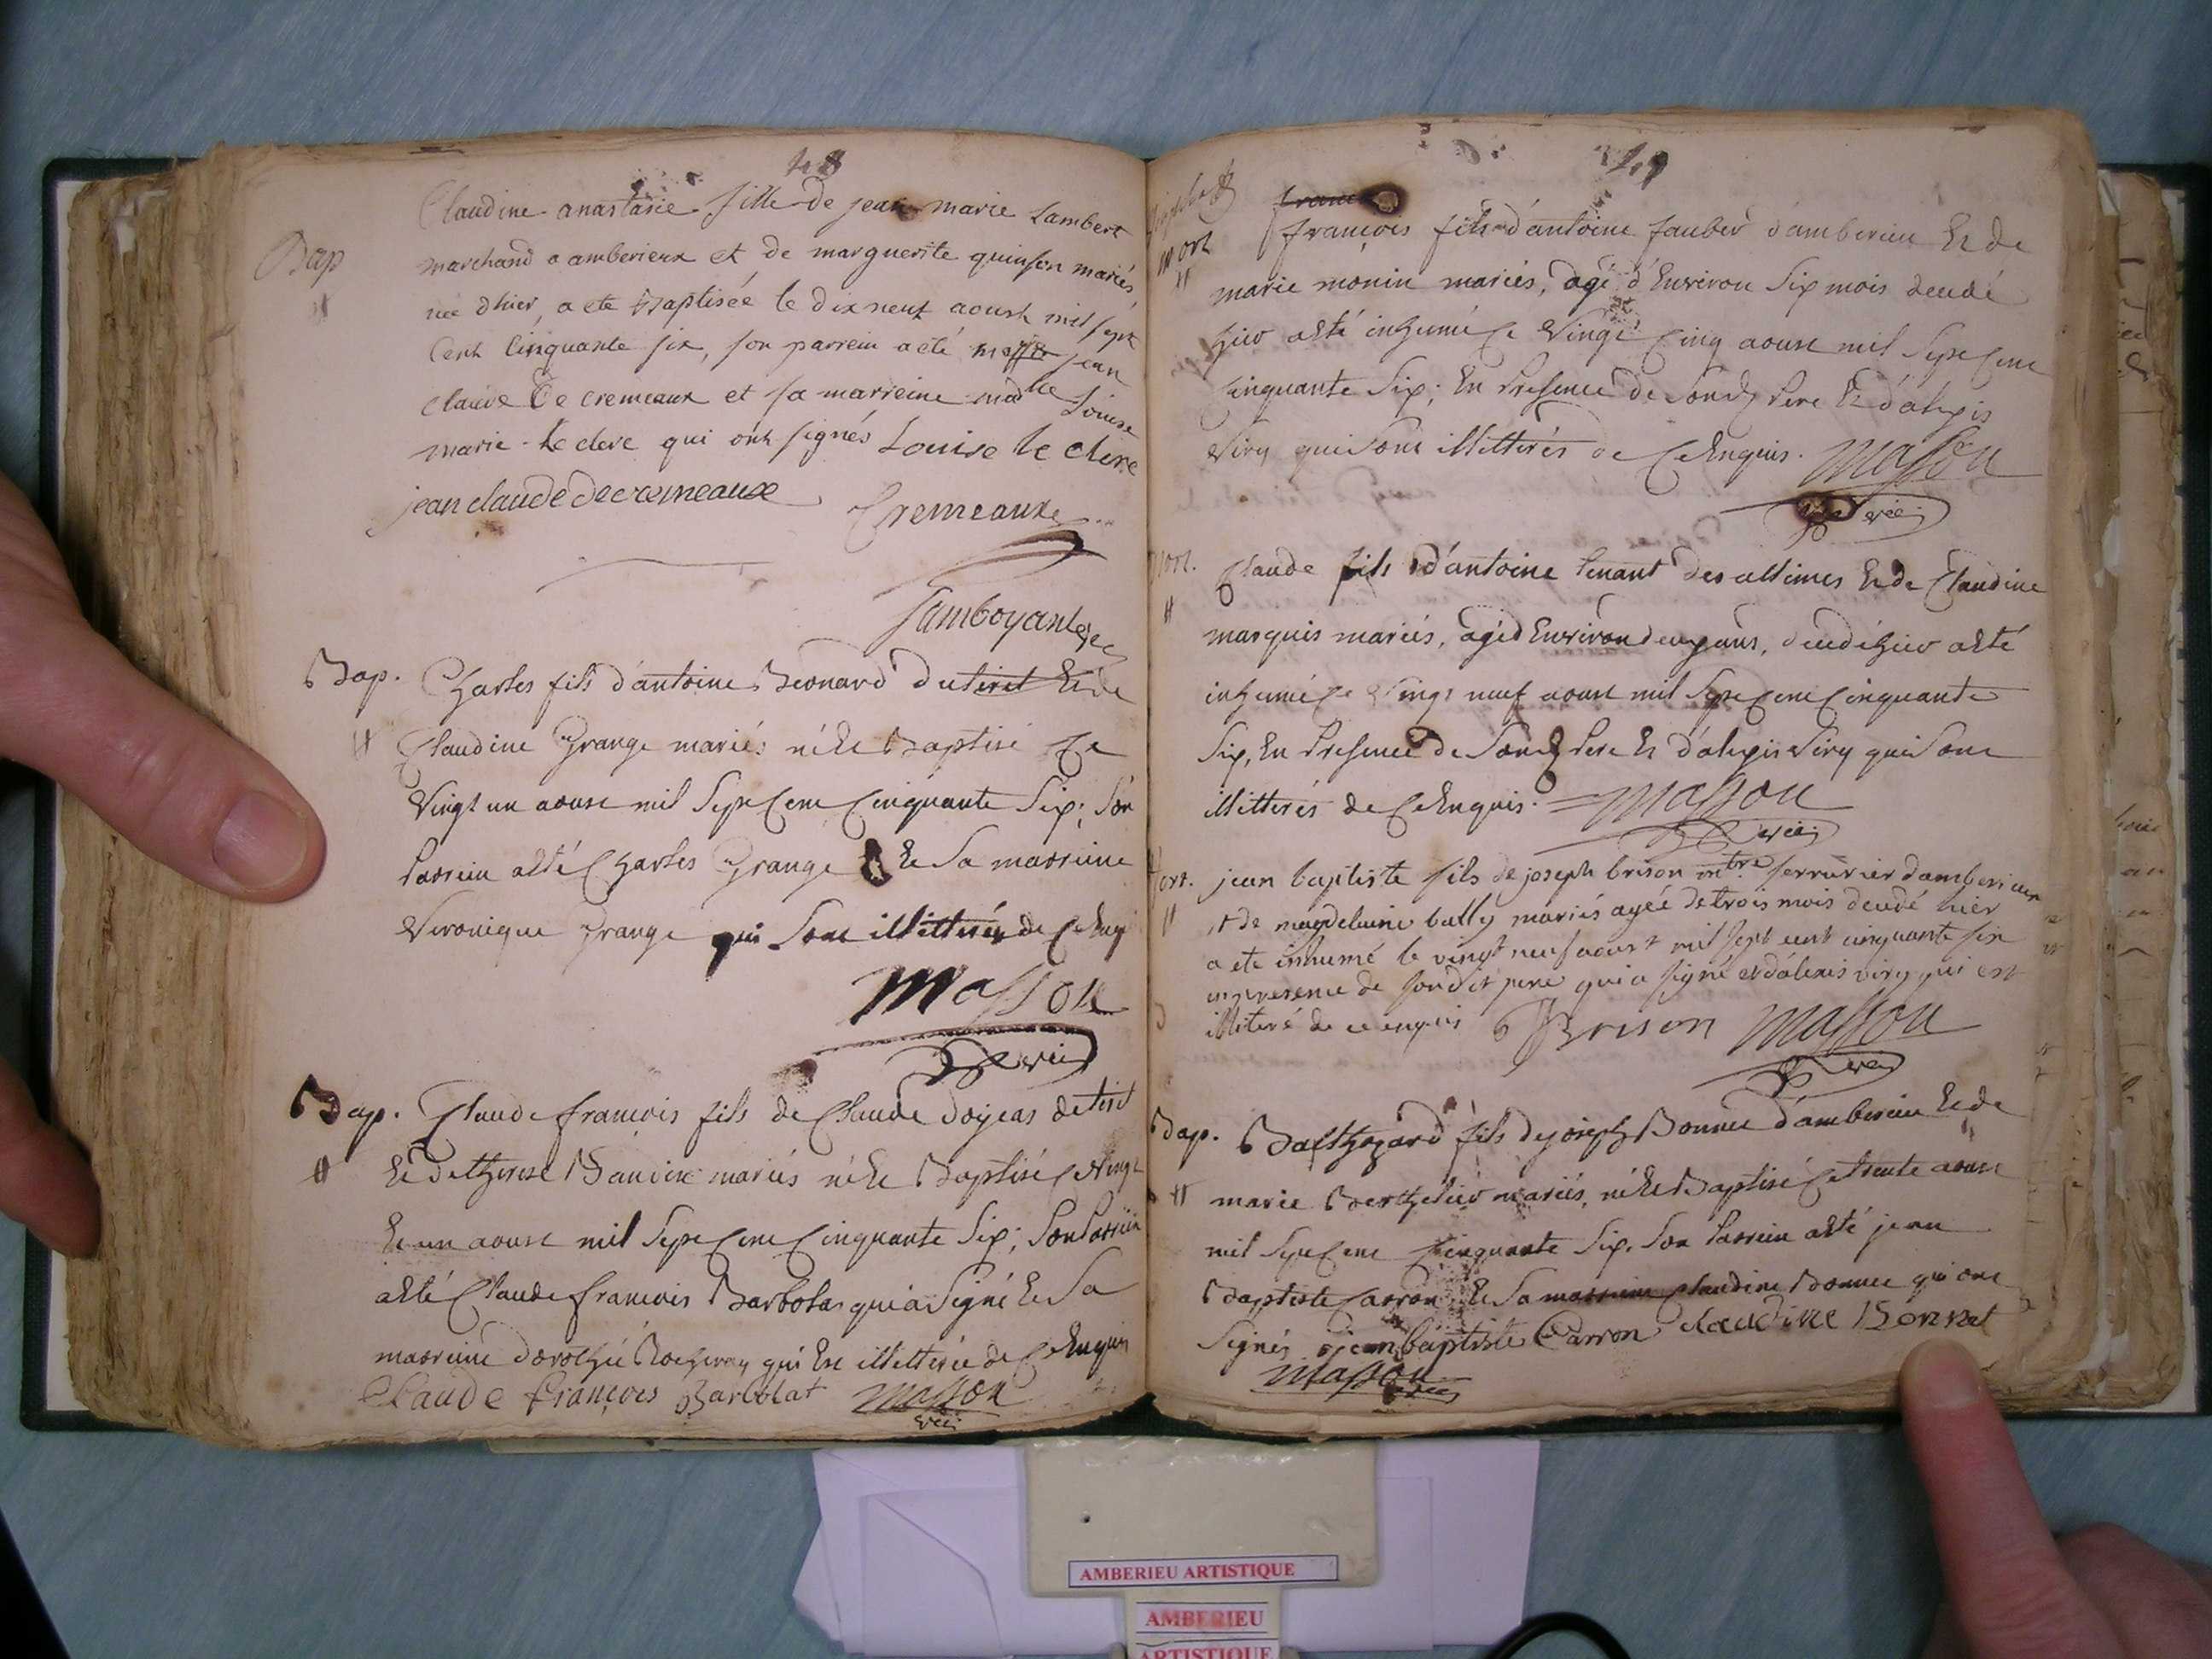 48
Bap
Claudine anastasie fille de jean marie Lambert
marchand a amberieux et de marguerite quinson mariés
née dhier, a ete Baptisée le dix neuf aoust mil sept
Cent Cinquante six, son parrein a été jean
claude De cremeaux et sa marreine mad.lle Louise
marie Le clerc qui ont signés Louise le clerc
jean claude decremeaux Cremeaux
Bap. Charles fils d'antoine Beonard du tiret Et de
Claudine Grange mariés né Et Baptisé Ce
Vingt un aoust mil Sept Cent Cinquante Six; Son
Parrein a Eté Charles Grange Et Sa marreine
Veronique Grange qui Sont illitterés de Ce Enqui
Masson
vic
Bap. Claude françois fils de Claude Dojeas de tiret
Et De therese Baudin mariés né Et Baptisé Ce Vingt
Et un aoust mil Sept Cent Cinquante Six; Son Parrein
a Eté Claude francois Barbolat qui a Signé Et Sa
marreine dorothée qui Est illitterée de Ce Enquis
Claude françois Barbolat Masson
vic
49
mort
françois fils d'antoine d'amberieu Et de
marie monin mariés, agé d'Environ Six mois decedé
hier a Eté inhumé Ce Vingt Cinq aoust mil Sept Cent
Cinquante Six; En Presence de Sondt Pere Et d'alexis
Viry qui Sont illitterés de Ce Enquis. Masson
vic
mort. Claude fils d'antoine tenant des allimes Et de Claudine
marquis mariés, agé d'Environ deux ans, decedé hier a Eté
inhumé Ce Vingt neuf aoust mil Sept Cent Cinquante
Six, En Presence de Sondt Pere Et d'alexis Viry qui Sont
illitterés de Ce Enquis. Masson
vic
mort. jean baptiste fils de joseph brison mtre serrurier d'amberieux
et de magdelaine bally mariés agée de trois mois decedé hier
a ete inhumé le vingt neuf aoust mil sept cent cinquante six
en presence de sondit pere qui a signé et d'alexis viry qui est
illiteré de ce enquis Brison Masson
vic
Bap. Balthazard fils de joseph Bonnet d'amberieu Et de
marie Berthelier mariés, né Et Baptisé Ce trente aoust
mil Sept Cent Cinquante Six. Son Parrein a Eté jean
Baptiste Carron Et Sa marreine Claudine Bonnet qui ont
Signés jean baptiste Carron claudine Bonnet
Masson
vic
AMBERIEU ARTISTIQUE
AMBERIEU
ARTISTIQUE